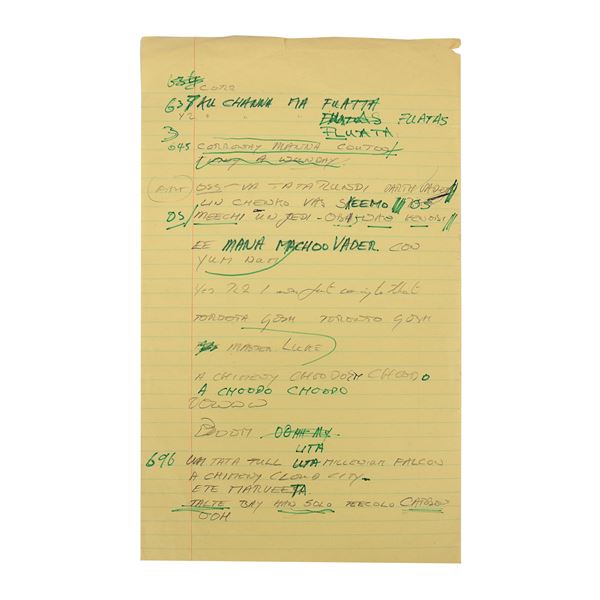 CORR
637 KU CHANNA MA FUATTA
Y2 " " " FUATAS
3 FUATA.
045 CORROWAY MANNA COUTOO
A WUNDAY!
OSS-VA TATA RUNDI DARTH VADER
LIN CHENKO VAS SKEEMO OS
OS/ MEECHI UN JEDI - OBA WAN KENOBI
EE MANA MACHOO VADER. CON
YUM NUM
Yes R2 I was just coming to that
TORDOTA GOSH TORONTO GOSH
MASTER LUKE
A CHIMENY CHOODOTH CHOODO
A CHOODO CHOODO
VOWOOO
BOOM OOHH MY
UTA
696 UM TATA TULL UTA MILLENIUM FALCON
A CHIMENY CLOUD CITY
ETE MARVEETA.
TALTE BAY HAN SOLO TEECOLO CARBON
OOH